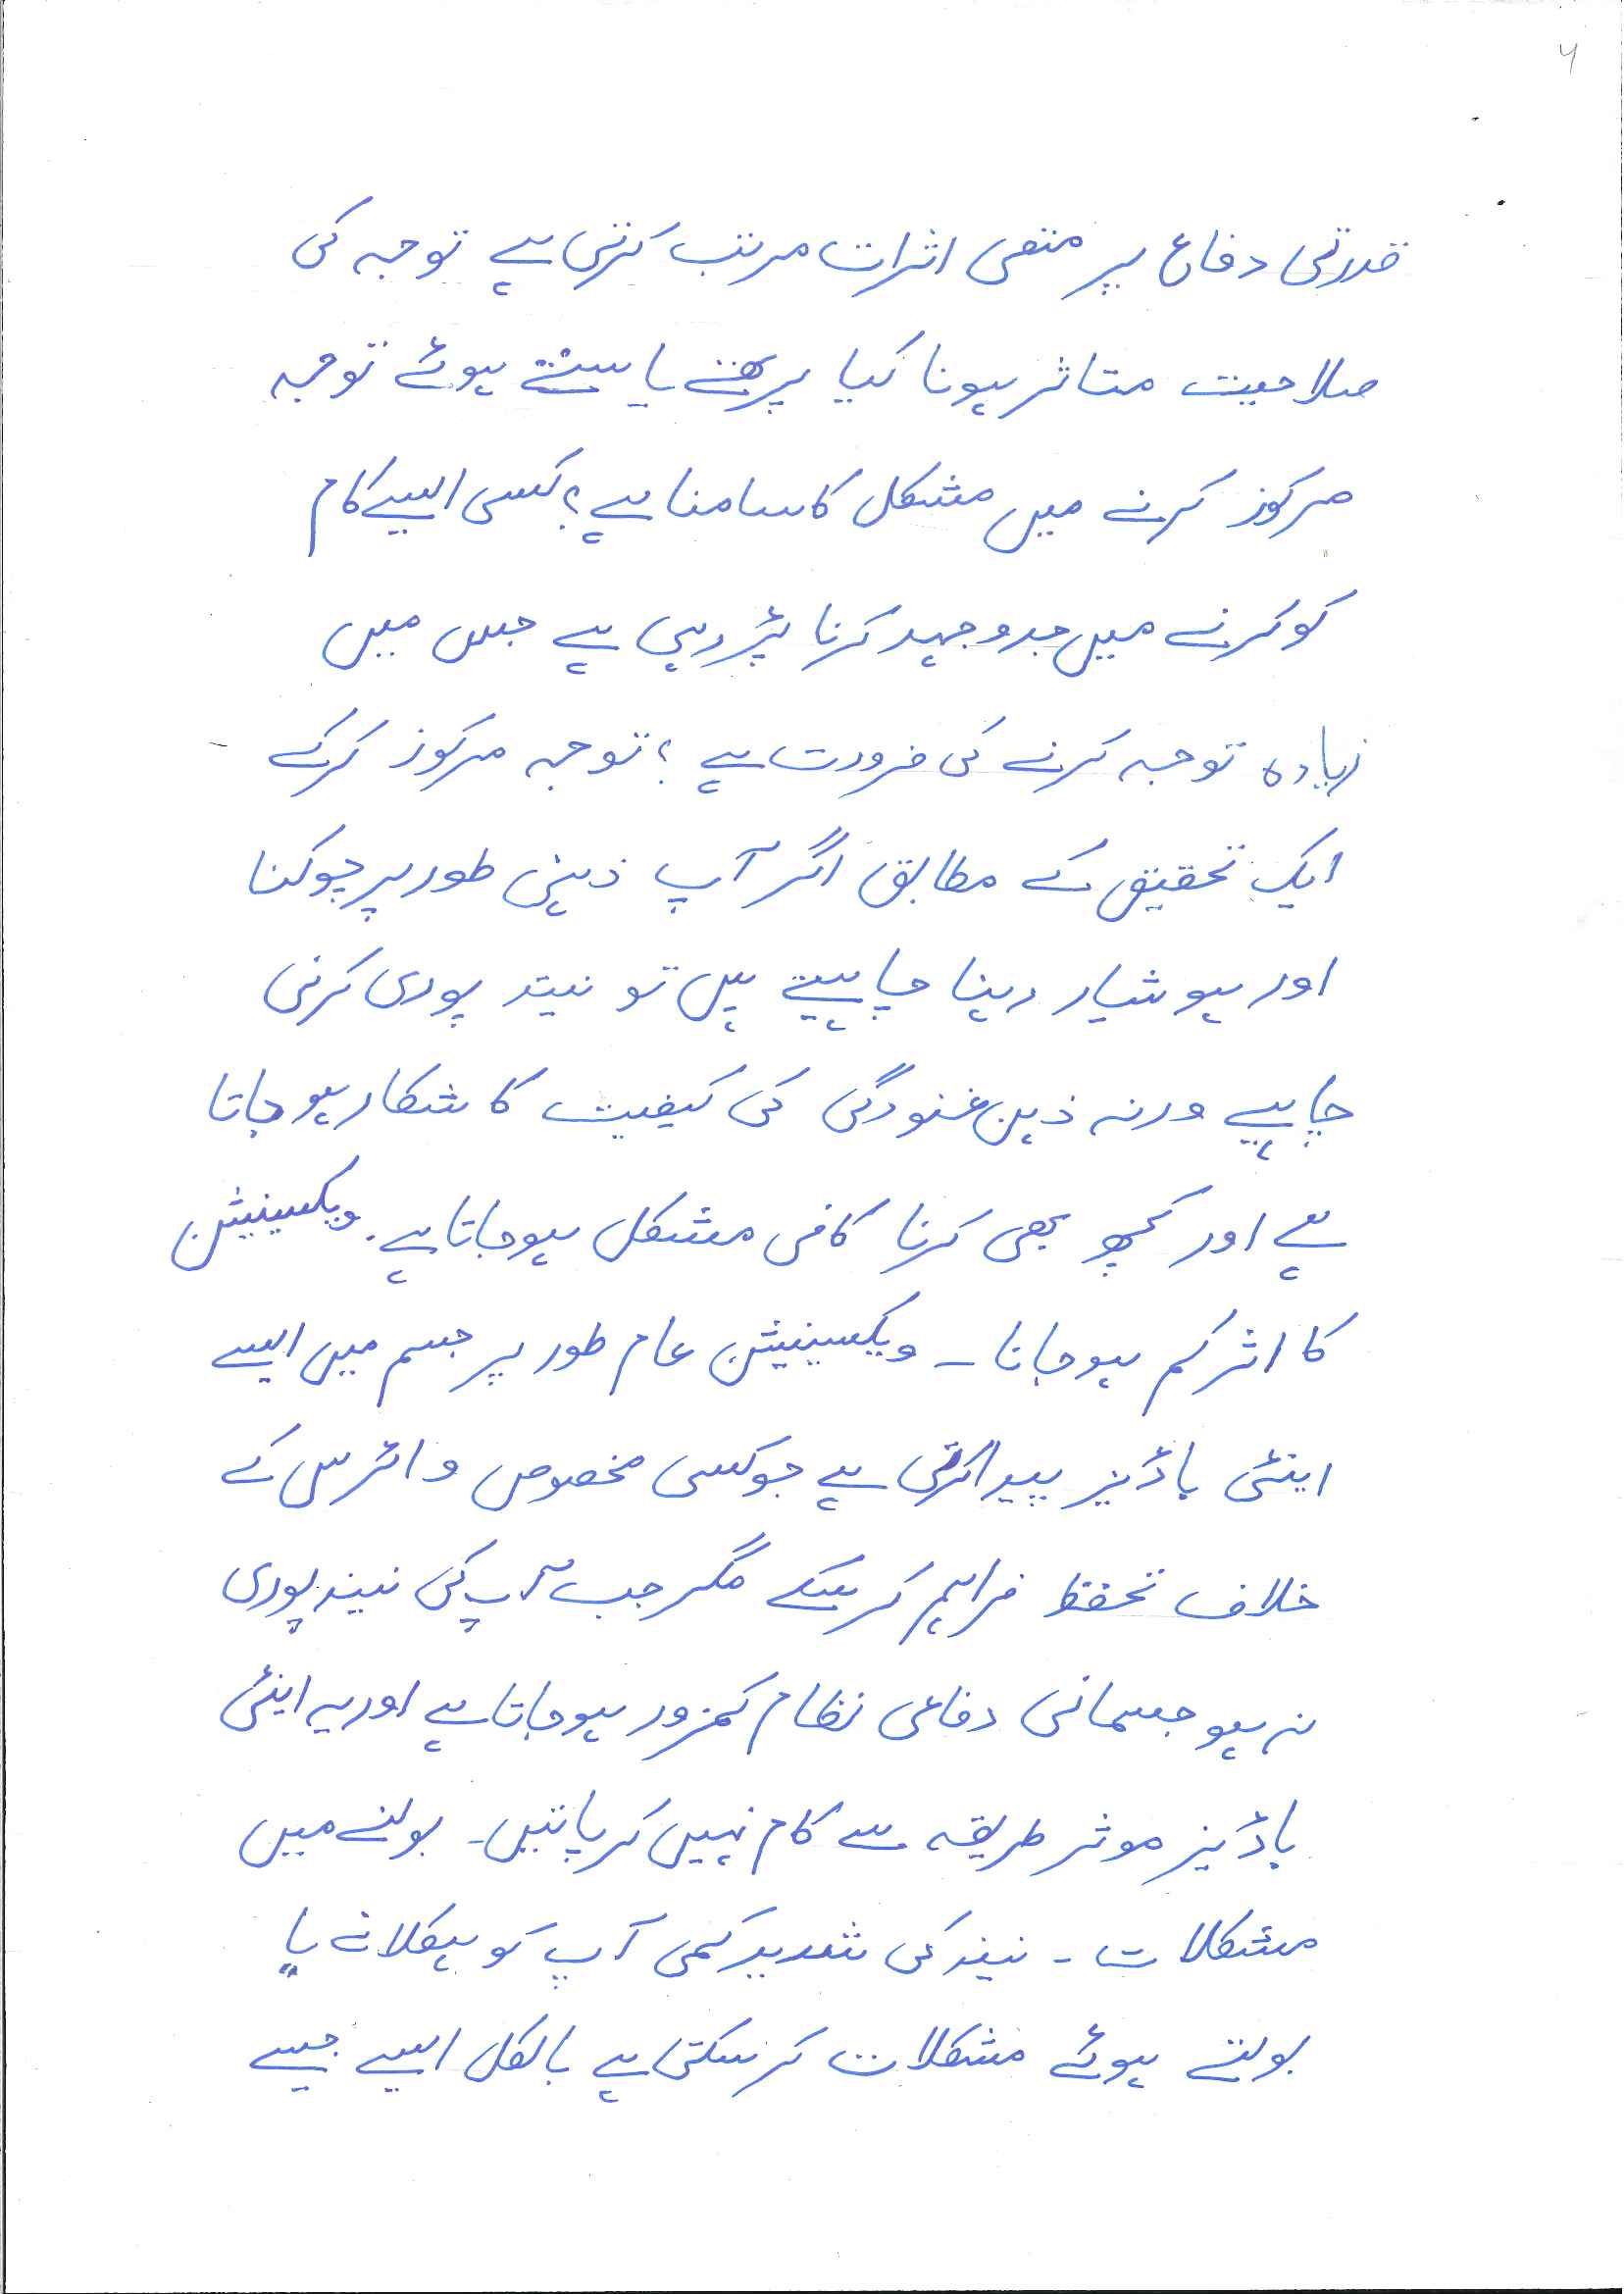 ۷
قدرتی دفاع پر منفی اثرات مرتب کرتی ہے توجہ کی
صلاحیت متاثر ہونا کیا پڑھتے یا سنتے ہوئے توجہ
مرکوز کرنے میں مشکل کا سامنا ہے؟ کسی ایسے کام
کو کرنے میں جدوجہد کرنا پڑ رہی ہے جس میں
زیادہ توجہ کرنے کی ضرورت ہے؟ توجہ مرکوز کرکے
ایک تحقیق کے مطابق اگر آپ ذہنی طور پر چوکنا
اور ہوشیار رہنا چاہیتے ہیں تو نیند پوری کرنی
چاہیے ورنہ ذہن غنودگی کی کیفیت کا شکار ہو جاتا
ہے اور کچھ بھی کرنا کافی مشکل ہو جاتا ہے۔ ویکسینیشن
کا اثر کم ہو جانا۔ ویکسینیشن عام طور پر جسم میں ایسے
اینٹی باڈیز پیدا کرتی ہے جو کسی مخصوص وائرس کے
خلاف تحفظ فراہم کر سکے مگر جب آپ کی نیند پوری
نہ ہو جسمانی دفاعی نظام کمزور ہو جاتا ہے اور یہ اینٹی
باڈیز موثر طریقہ سے کام نہیں کر پاتیں۔ بولنے میں
مشکلات۔ نیند کی شدید کمی آپ کو ہکلانے یا
بولتے ہوئے مشکلات کر سکتی ہے بالکل ایسے جیسے